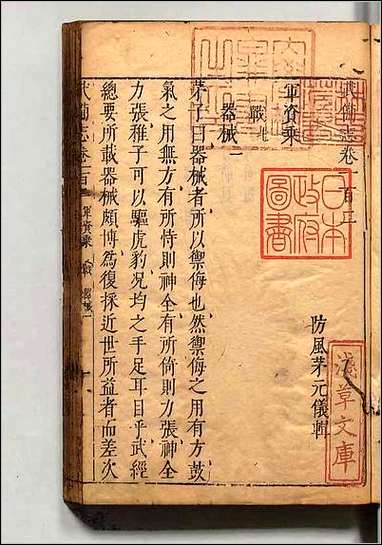 武備志卷一百三
防風茅元儀輯
軍資乘
戰
器械一
茅子曰器械者所以禦侮也然禦侮之用有方鼓
氣之用無方有所恃則神全有所倚則力張神全
力張稚子可以驅虎豹况均之手足耳目乎武經
總要所載器械頗博為復採近世所益者而差次
武備志卷一百三 軍資乘 戰 器械一 一
日本
政府
圖書
淺草文庫